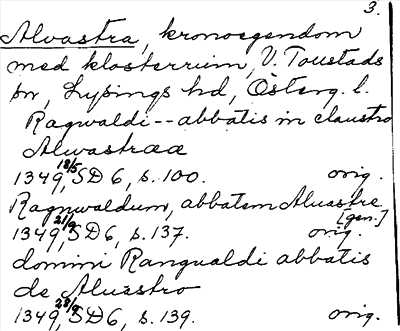 3.
Alvastra, kronoegendom
med klosterruin, V. Toustads
sn, Lysings hd, Österg. l.
Ragwaldi -- abbatis in claustro
Alwastraa
1349 18/5, SD 6, s. 100. orig.
Ragnwaldum, abbatem Aluastre [gen.]
1349 21/9, SD 6, s. 137. orig.
domini Rangualdi abbatis
de Aluastro
1349 28/9, SD 6, s. 139. orig.